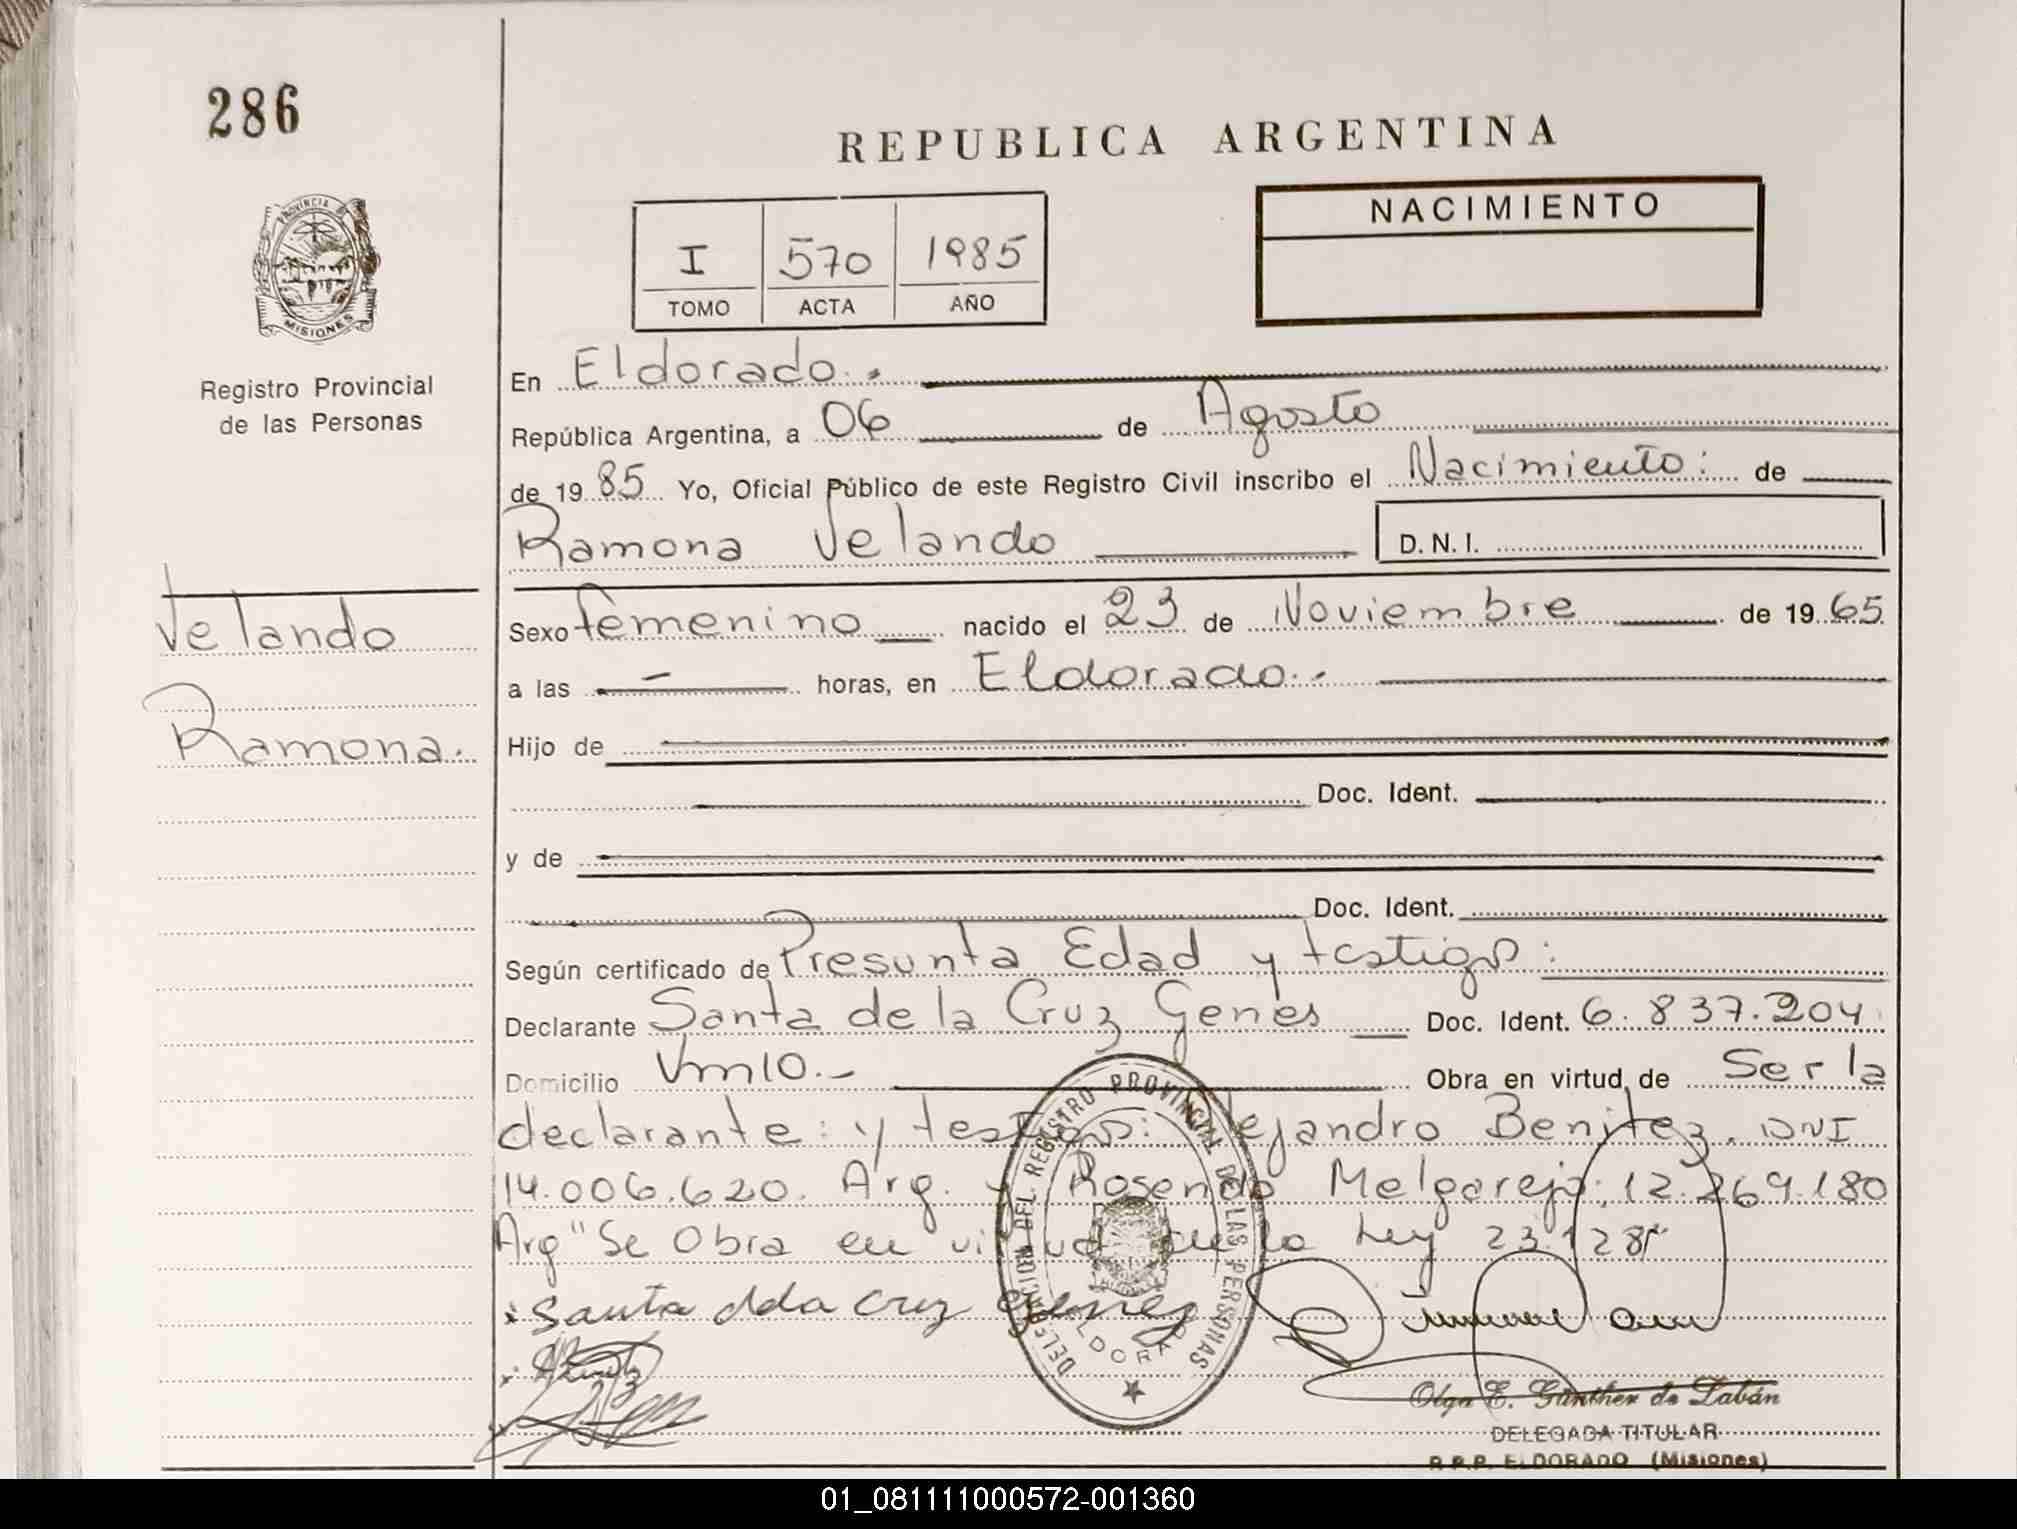 286
REPUBLICA ARGENTINA
PROVINCIA DE
MISIONES
Registro Provincial
de las Personas
I 570 1985
TOMO ACTA AÑO
NACIMIENTO
En Eldorado.
República Argentina, a 06 de Agosto
de 1985 Yo, Oficial Público de este Registro Civil inscribo el Nacimiento: de
Ramona Velando D.N.I.
Velando
Ramona.
Sexo femenino nacido el 23 de Noviembre de 1965.
a las — horas, en Eldorado.-
Hijo de
Doc. Ident.
y de
Doc. Ident.
Según certificado de Presunta Edad y testigos:
Declarante Santa de la Cruz Genes Doc. Ident. 6.837.204.
Domicilio Vm10.- Obra en virtud de Ser la
declarante: y testigos: Alejandro Benitez. DNI
14.006.620. Arg. y Rosendo Melgarejo: 12.269.180
Arg" Se Obra en virtud de la Ley 23.128"
Santa dda cruz Genez
DELEGACION DEL REGISTRO PROVINCIAL DE LAS PERSONAS
ELDORADO
Olga E. Günther de Labán
DELEGADA TITULAR
R.P.P. ELDORADO (Misiones)
01_081111000572-001360